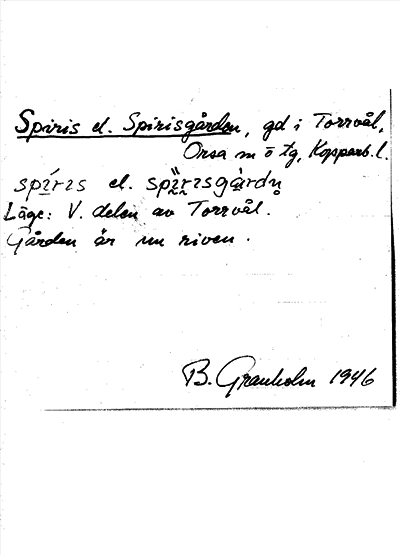 Spiris el. Spirisgården, gd i Torrvål,
Orsa sn o tg, Kopparb. l.
spíris el. spï̀risgàrdn̥
Läge: V. delen av Torrvål.
Gården är nu riven.
B. Granholm 1946